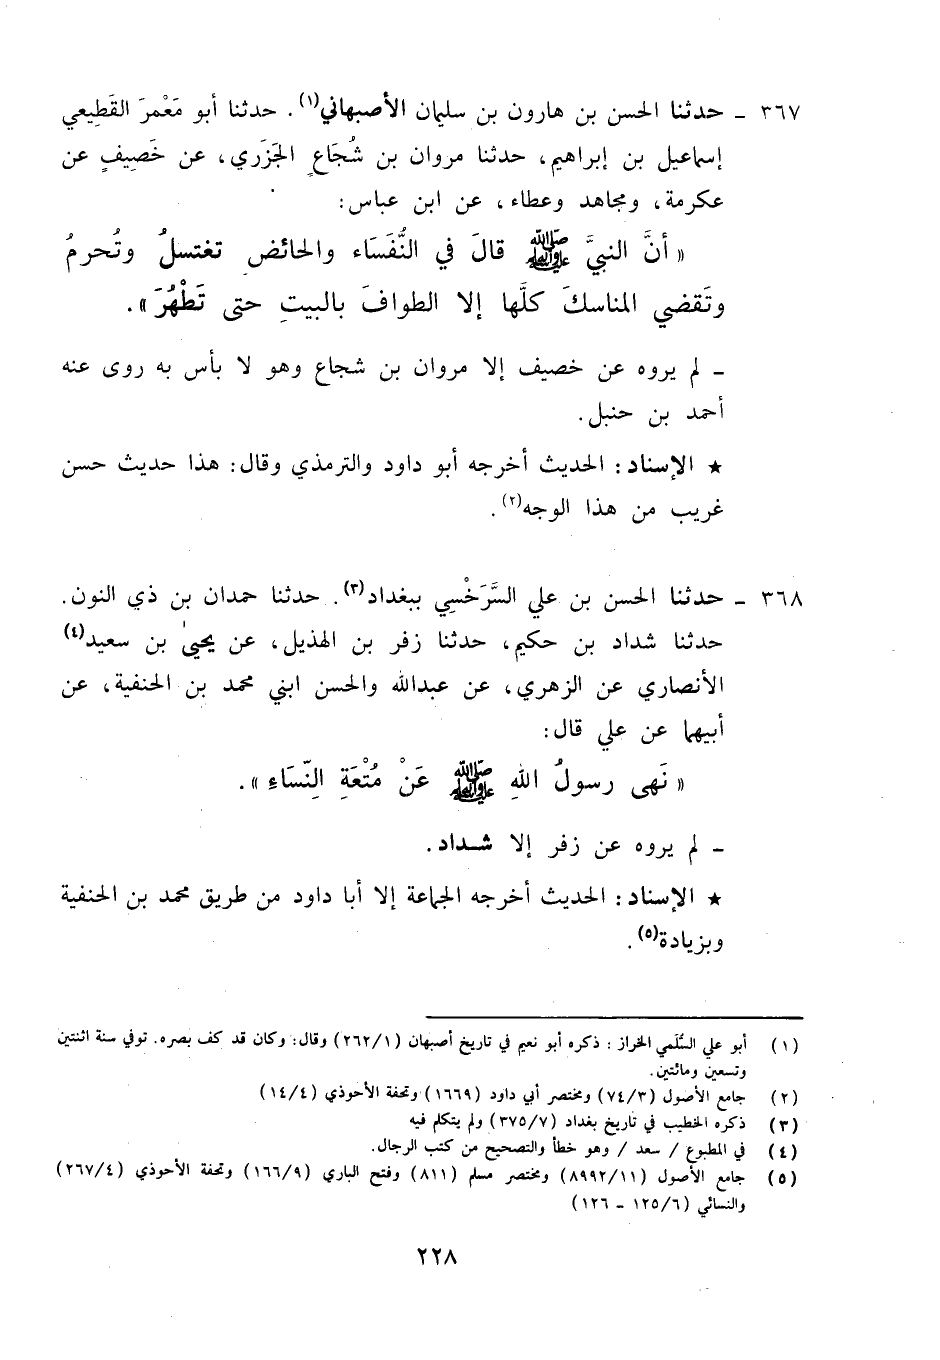 ٣٦٧ ـ حدثنا الحسن بن هارون بن سليمان الأصبهاني(١). حدثنا أبو مَعْمرَ القَطِيعي
إسماعيل بن إبراهيم، حدثنا مروان بن شُجَاعٍ الجَزَري، عن خَصِيفٍ عن
عكرمة، ومجاهد وعطاء، عن ابن عباس:
« أنَّ النبيَّ ﷺ قالَ في النُّفَسَاء والحائضِ تغتسلُ وتُحرمُ
وتَقضي المناسكَ كلَّها إلا الطوافَ بالبيتِ حتى تَطْهُرَ».
ـ لم يروه عن خصيف إلا مروان بن شجاع وهو لا بأس به روى عنه
أحمد بن حنبل.
★ الإسناد: الحديث أخرجه أبو داود والترمذي وقال: هذا حديث حسن
غريب من هذا الوجه(٢).
٣٦٨ ـ حدثنا الحسن بن علي السَّرَخْسِي ببغداد(٣). حدثنا حمدان بن ذي النون.
حدثنا شداد بن حكيم، حدثنا زفر بن الهذيل، عن يحيىٰ بن سعيد(٤)
الأنصاري عن الزهري، عن عبدالله والحسن ابني محمد بن الحنفية، عن
أبيهما عن علي قال:
« نَهى رسولُ اللهِ ﷺ عَنْ مُتْعَةِ النِّسَاءِ».
ـ لم يروه عن زفر إلا شداد.
★ الإسناد: الحديث أخرجه الجماعة إلا أبا داود من طريق محمد بن الحنفية
وبزيادة(٥).
(١) أبو علي السُّلَمي الخراز: ذكره أبو نعيم في تاريخ أصبهان (٢٦٢/١) وقال: وكان قد كف بصره. توفي سنة اثنتين
وتسعين ومائتين.
(٢) جامع الأصول (٧٤/٣) ومختصر أبي داود (١٦٦٩) وتحفة الأحوذي (١٤/٤)
(٣) ذكره الخطيب في تاريخ بغداد (٣٧٥/٧) ولم يتكلم فيه
(٤) في المطبوع / سعد / وهو خطأ والتصحيح من كتب الرجال.
(٥) جامع الأصول (٨٩٩٢/١١) ومختصر مسلم (٨١١) وفتح الباري (١٦٦/٩) وتحفة الأحوذي (٢٦٧/٤)
والنسائي (١٢٥/٦ ـ ١٢٦)
٢٢٨